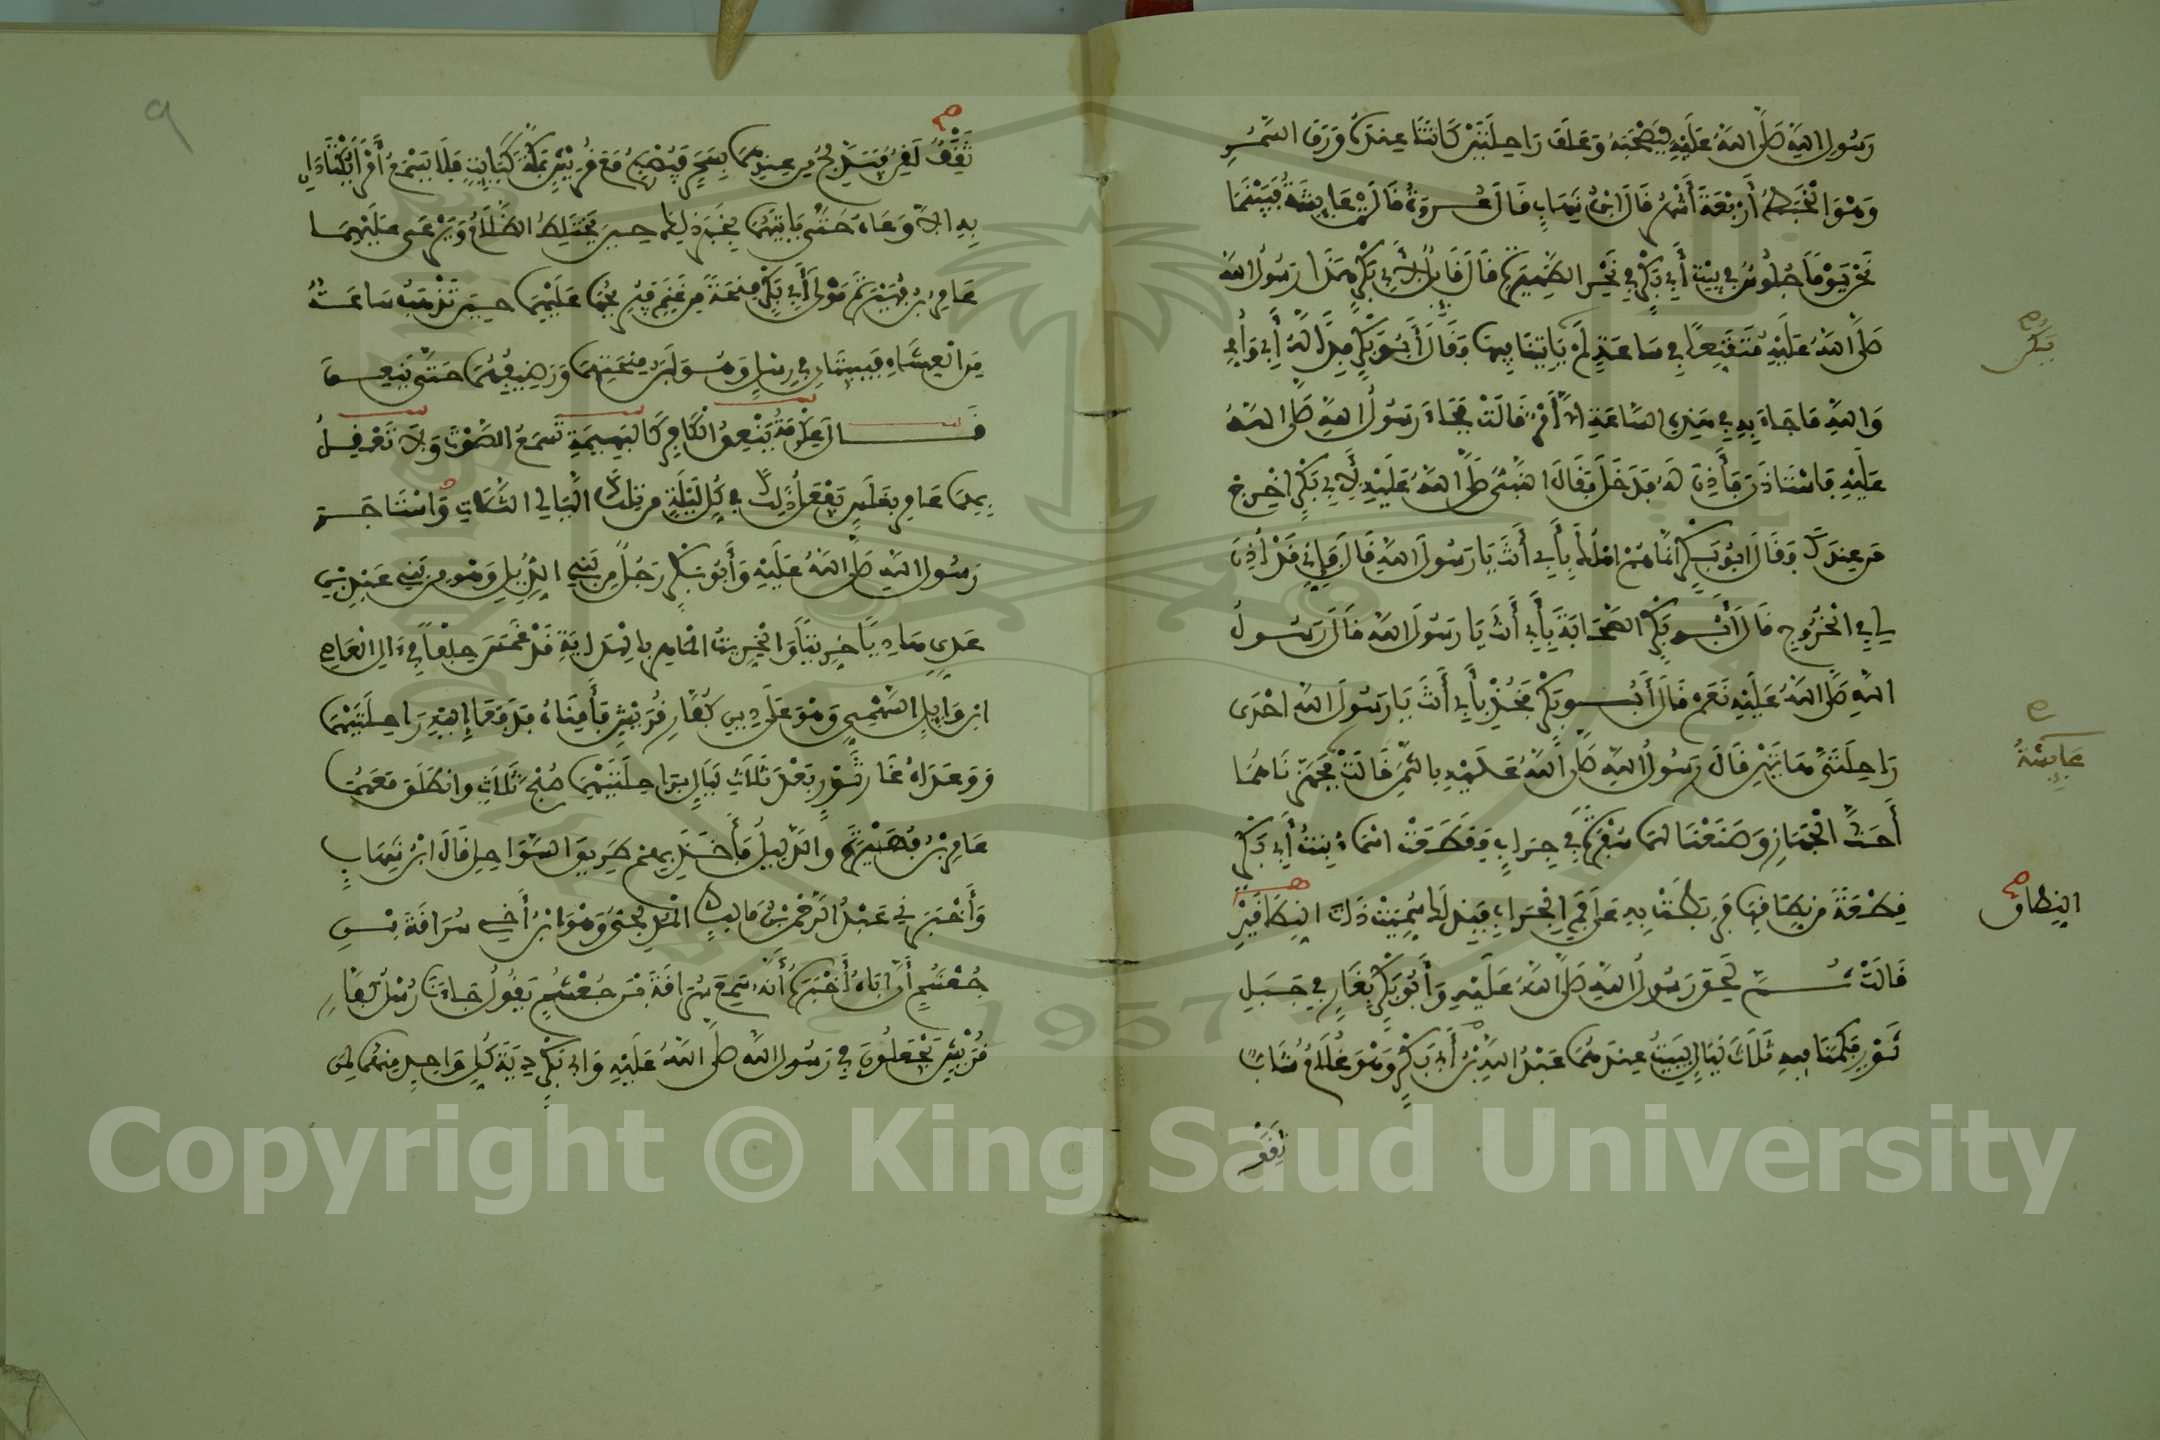 رَسُولِ اللهِ صَلَّى اللهُ عَلَيْهِ لِيَصْحَبَهُ وَعَلَفَ رَاحِلَتَيْنِ كَانَتَا عِنْدَهُ وَرَقَ السَّمُرِ
وَهْوَ الْخَبَطُ أَرْبَعَةَ أَشْهُرٍ قَالَ ابْنُ شِهَابٍ قَالَ عُرْوَةُ قَالَتْ عَائِشَةُ فَبَيْنَمَا
نَحْنُ يَوْمًا جُلُوسٌ فِي بَيْتِ أَبِي بَكْرٍ فِي نَحْرِ الظَّهِيرَةِ قَالَ قَائِلٌ لِأَبِي بَكْرٍ هَذَا رَسُولُ اللهِ
صَلَّى اللهُ عَلَيْهِ مُتَقَنِّعًا فِي سَاعَةٍ لَمْ يَأْتِنَا فِيهَا فَقَالَ أَبُو بَكْرٍ فِدًا لَهُ أَبِي وَأُمِّي
وَاللهِ مَا جَاءَ بِهِ فِي هَذِهِ السَّاعَةِ إِلَّا أَمْرٌ قَالَتْ فَجَاءَ رَسُولُ اللهِ صَلَّى اللهُ
عَلَيْهِ فَاسْتَأْذَنَ فَأَذِنَ لَهُ فَدَخَلَ فَقَالَ النَّبِيُّ صَلَّى اللهُ عَلَيْهِ لِأَبِي بَكْرٍ أَخْرِجْ
مَنْ عِنْدَكَ فَقَالَ أَبُو بَكْرٍ إِنَّمَا هُمْ أَهْلُكَ بِأَبِي أَنْتَ يَا رَسُولَ اللهِ قَالَ فَإِنِّي قَدْ أُذِنَ
لِي فِي الْخُرُوجِ قَالَ أَبُو بَكْرٍ الصَّحَابَةَ بِأَبِي أَنْتَ يَا رَسُولَ اللهِ قَالَ رَسُولُ
اللهِ صَلَّى اللهُ عَلَيْهِ نَعَمْ قَالَ أَبُو بَكْرٍ فَخُذْ بِأَبِي أَنْتَ يَا رَسُولَ اللهِ إِحْدَى
رَاحِلَتَيَّ هَاتَيْنِ قَالَ رَسُولُ اللهِ صَلَّى اللهُ عَلَيْهِ بِالثَّمَنِ قَالَتْ فَجَهَّزْنَاهُمَا
أَحَثَّ الْجَهَازِ وَصَنَعْنَا لَهُمَا سُفْرَةً فِي جِرَابٍ فَقَطَعَتْ أَسْمَاءُ بِنْتُ أَبِي بَكْرٍ
قِطْعَةً مِنْ نِطَاقِهَا فَرَبَطَتْ بِهِ عَلَى فَمِ الْجِرَابِ فَبِذَلِكَ سُمِّيَتْ ذَاتَ النِّطَاقَيْنِ
قَالَتْ ثُمَّ لَحِقَ رَسُولُ اللهِ صَلَّى اللهُ عَلَيْهِ وَأَبُو بَكْرٍ بِغَارٍ فِي جَبَلِ
ثَوْرٍ فَكَمَنَا فِيهِ ثَلَاثَ لَيَالٍ يَبِيتُ عِنْدَهُمَا عَبْدُ اللهِ بْنُ أَبِي بَكْرٍ وَهْوَ غُلَامٌ شَابٌّ
ثَقِفٌ
بَكْر
عَائِشَةُ
النِّطَاقِ
٩
ثَقِفٌ لَقِنٌ فَيُدْلِجُ مِنْ عِنْدِهِمَا بِسَحَرٍ فَيُصْبِحُ مَعَ قُرَيْشٍ بِمَكَّةَ كَبَائِتٍ فَلَا يَسْمَعُ أَمْرًا يُكْتَادَانِ
بِهِ إِلَّا وَعَاهُ حَتَّى يَأْتِيَهُمَا بِخَبَرِ ذَلِكَ حِينَ يَخْتَلِطُ الظَّلَامُ وَيَرْعَى عَلَيْهِمَا
عَامِرُ بْنُ فُهَيْرَةَ مَوْلَى أَبِي بَكْرٍ مِنْحَةً مِنْ غَنَمٍ فَيُرِيحُهَا عَلَيْهِمَا حِينَ تَذْهَبُ سَاعَةٌ
مِنَ الْعِشَاءِ فَيَبِيتَانِ فِي رِسْلٍ وَهُوَ لَبَنُ مِنْحَتِهِمَا وَرَضِيفِهِمَا حَتَّى يَنْعِقَ
قَالَ عِكْرِمَةُ يَنْعِقُ الْكَافِرُ كَالْبَهِيمَةِ تَسْمَعُ الصَّوْتَ وَلَا تَعْقِلُ
بِهِمَا عَامِرٌ بِغَلَسٍ يَفْعَلُ ذَلِكَ فِي كُلِّ لَيْلَةٍ مِنْ تِلْكَ اللَّيَالِي الثَّلَاثِ وَاسْتَأْجَرَ
رَسُولُ اللهِ صَلَّى اللهُ عَلَيْهِ وَأَبُو بَكْرٍ رَجُلًا مِنْ بَنِي الدِّيلِ وَهْوَ مِنْ بَنِي عَبْدِ بْنِ
عَدِيٍّ هَادِيًا خِرِّيتًا وَالْخِرِّيتُ الْمَاهِرُ بِالْهِدَايَةِ قَدْ غَمَسَ حِلْفًا فِي آلِ الْعَاصِ
ابْنِ وَائِلٍ السَّهْمِيِّ وَهْوَ عَلَى دِينِ كُفَّارِ قُرَيْشٍ فَأَمِنَاهُ فَدَفَعَا إِلَيْهِ رَاحِلَتَيْهِمَا
وَوَعَدَاهُ غَارَ ثَوْرٍ بَعْدَ ثَلَاثِ لَيَالٍ بِرَاحِلَتَيْهِمَا صُبْحَ ثَلَاثٍ وَانْطَلَقَ مَعَهُمَا
عَامِرُ بْنُ فُهَيْرَةَ وَالدَّلِيلُ فَأَخَذَ بِهِمْ طَرِيقَ السَّوَاحِلِ قَالَ ابْنُ شِهَابٍ
وَأَخْبَرَنِي عَبْدُ الرَّحْمَنِ بْنُ مَالِكٍ الْمُدْلِجِيُّ وَهْوَ ابْنُ أَخِي سُرَاقَةَ بْنِ
جُعْشُمٍ أَنَّ أَبَاهُ أَخْبَرَهُ أَنَّهُ سَمِعَ سُرَاقَةَ بْنَ جُعْشُمٍ يَقُولُ جَاءَنَا رُسُلُ كُفَّارِ
قُرَيْشٍ يَجْعَلُونَ فِي رَسُولِ اللهِ صَلَّى اللهُ عَلَيْهِ وَأَبِي بَكْرٍ دِيَةَ كُلِّ وَاحِدٍ مِنْهُمَا لِمَنْ
Copyright © King Saud University
1957